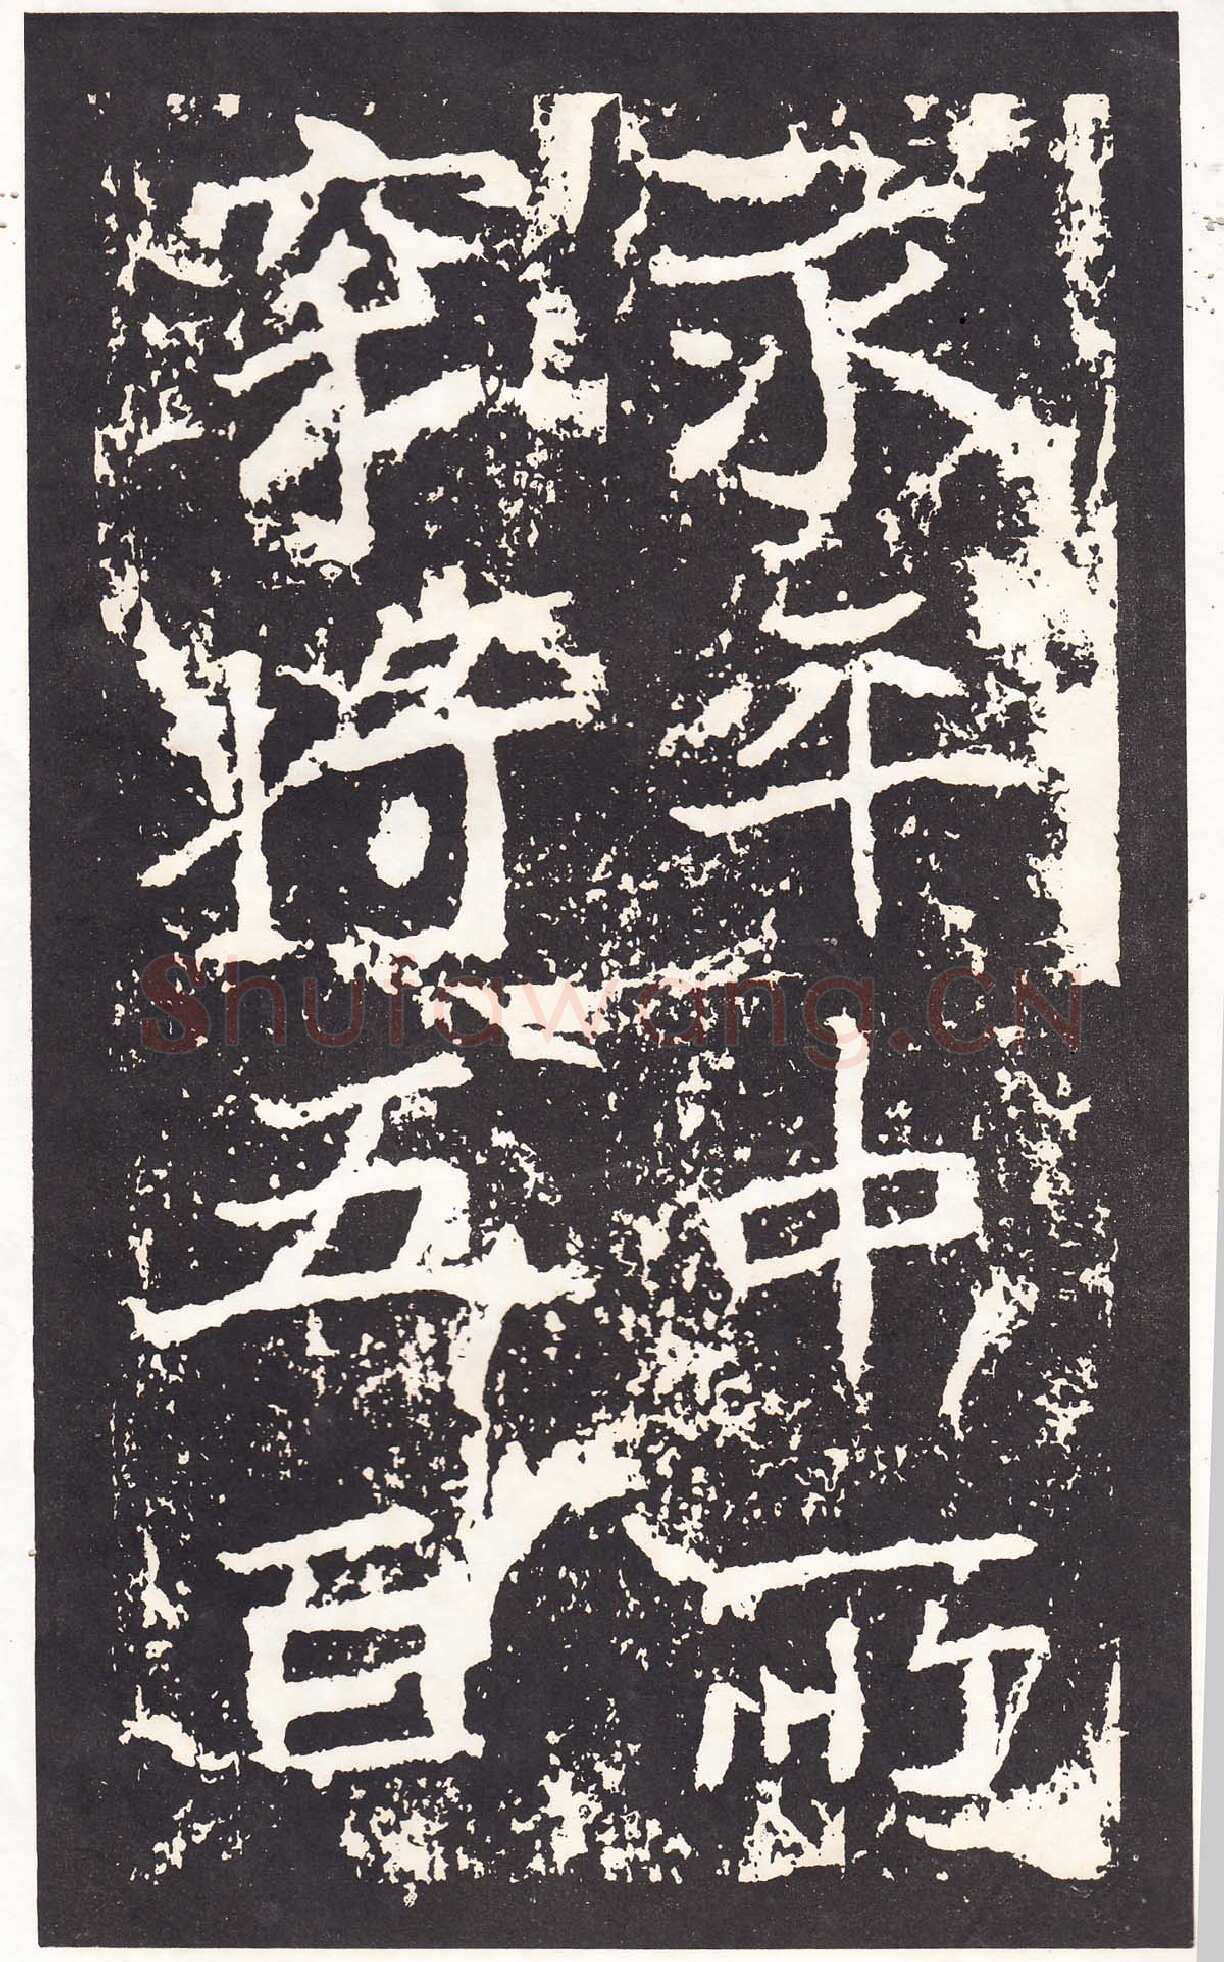 永平中所
穿將五百
Shufawang.CN